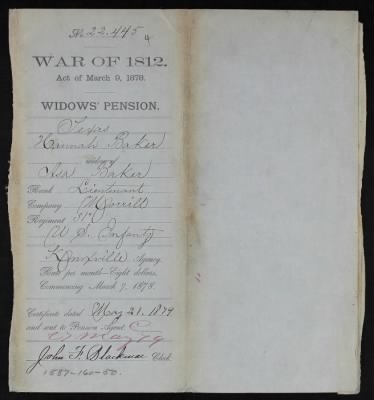 No 22.445
4
WAR OF 1812.
Act of March 9, 1878.
WIDOWS' PENSION.
Texas
Hannah Baker
widow of
Asa Baker
Rank Lieutenant
Company Morrill
Regiment 31st
U S. Infanty
Knoxville Agency.
Rate per month—Eight dollars,
Commencing March 9, 1878.
Certificate dated May 21. 1879
and sent to Pension Agent
27 May 79
John F. Blackmar Clerk.
1887-160-50.